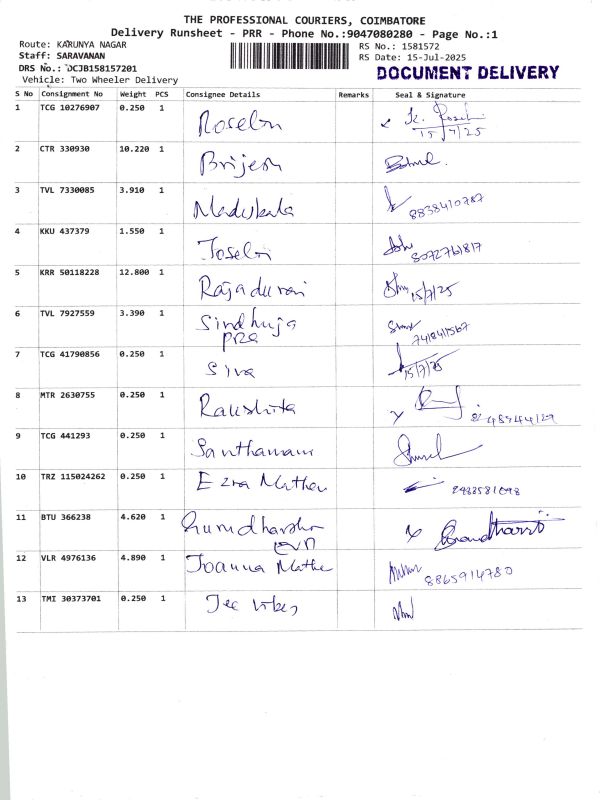 THE PROFESSIONAL COURIERS, COIMBATORE
Delivery Runsheet - PRR - Phone No.:9047080280 - Page No.:1
Route: KARUNYA NAGAR
RS No.: 1581572
Staff: SARAVANAN
RS Date: 15-Jul-2025
DRS No.: DCJB158157201
DOCUMENT DELIVERY
Vehicle: Two Wheeler Delivery
S No Consignment No Weight PCS Consignee Details Remarks Seal & Signature
1 TCG 10276907 0.250 1 Roselin
15/7/25
2 CTR 330930 10.220 1 Brijesh
3 TVL 7330085 3.910 1 Madubala
8838410787
4 KKU 437379 1.550 1 Joselin
8072761817
5 KRR 50118228 12.800 1 Rajadurai 15/7/25
6 TVL 7927559 3.390 1 Sindhuja
7418411567
7 TCG 41790856 0.250 1 Siva 15/7/25
8 MTR 2630755 0.250 1 Rakshita
9 TCG 441293 0.250 1
10 TRZ 115024262 0.250 1 Ezra Mathew
11 BTU 366238 4.620 1
12 VLR 4976136 4.890 1 Joanna Mathe
8865914780
13 TMI 30373701 0.250 1